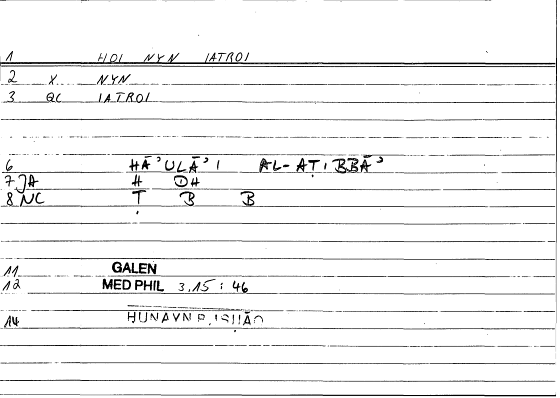 1 HOI NYN IATROI
2 X NYN
3 QC IATROI
6 HĀʾULĀʾI AL-AṬIBBĀʾ
7 JA H ḎH
8 NC Ṭ B B
11 GALEN
12 MED PHIL 3,15 : 46
14 HUNAYN B. ISḤĀQ